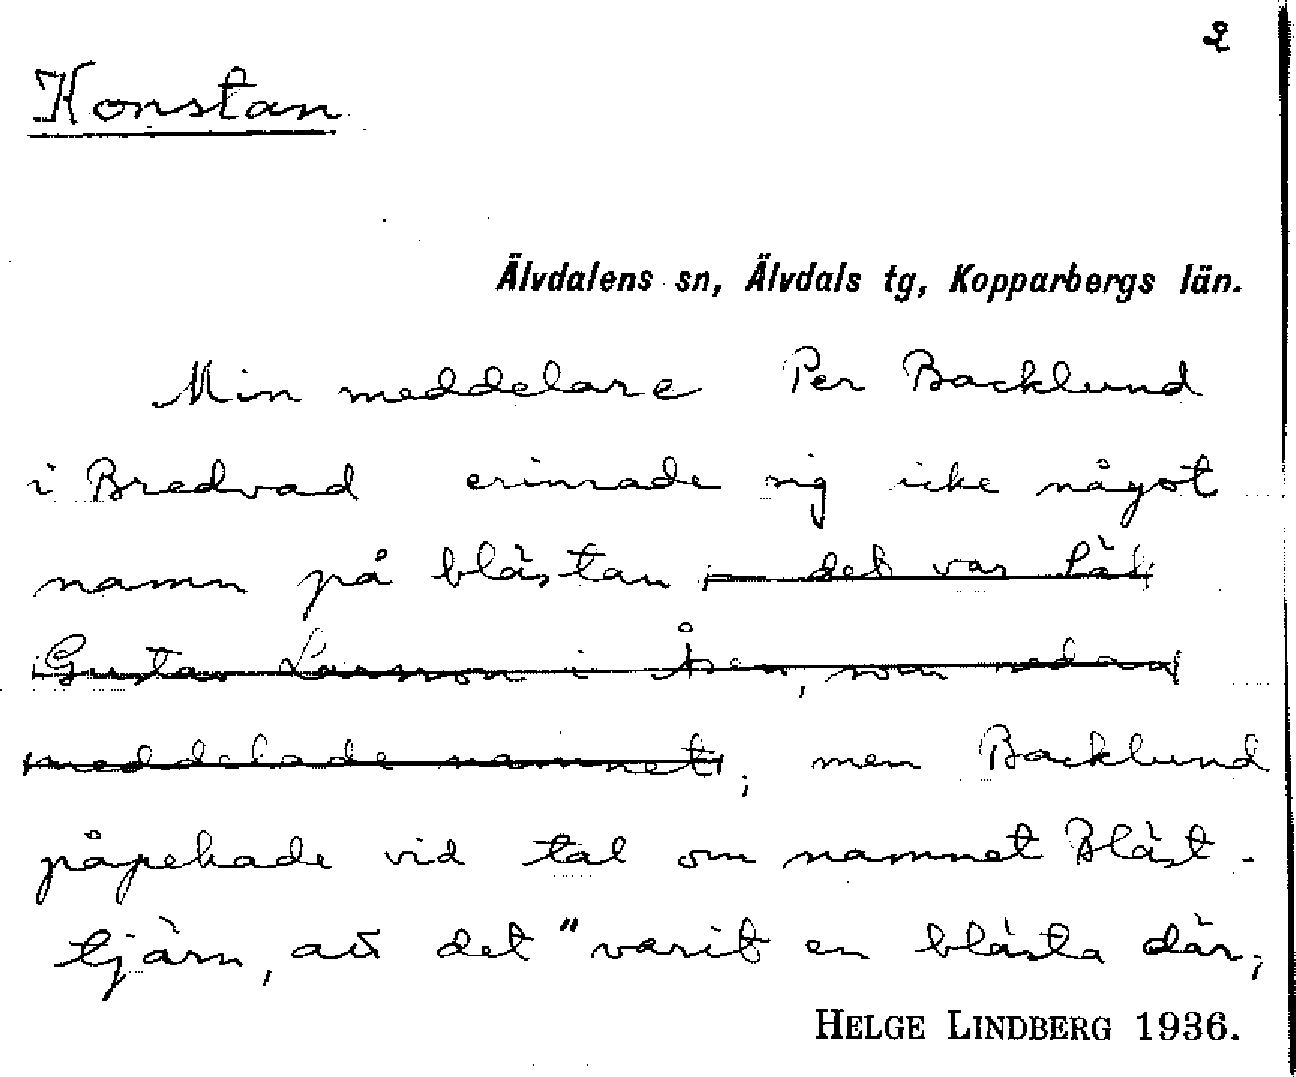 2
Konstan
Älvdalens sn, Älvdals tg, Kopparbergs län.
Min meddelare Per Backlund
i Bredvad erinrade sig icke något
namn på blästan det var
Gustav Larsson i Åsen, som
meddelade namnet, men Backlund
påpekade vid tal om namnet Bläst-
tjärn, att det "varit en blästa där,
HELGE LINDBERG 1936.